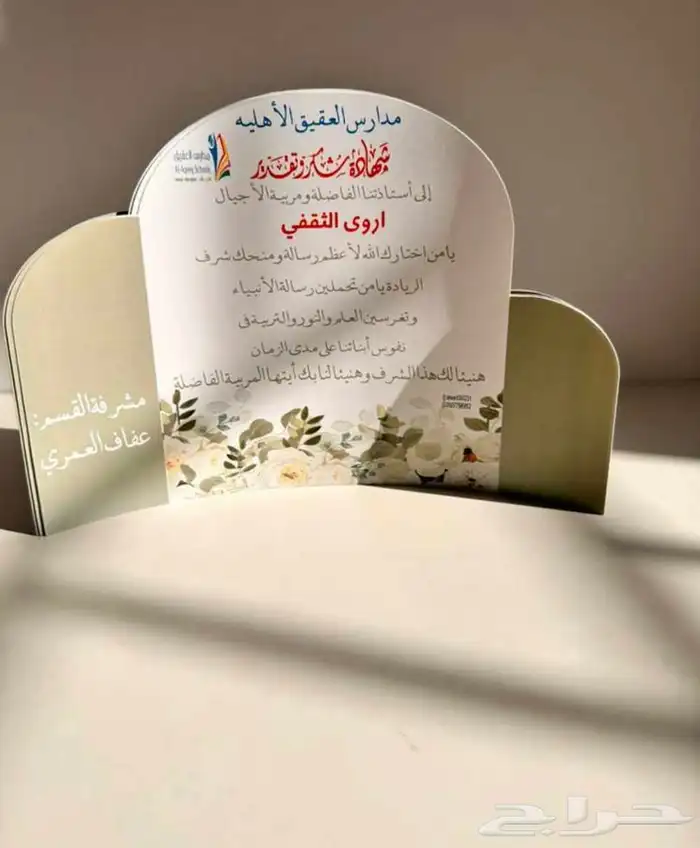 مدارس العقيق الأهليه
شهادة شكر وتقدير
إلى أستاذتنا الفاضلة ومربية الأجيال
اروى الثقفي
يا من اختارك الله لأعظم رسالة ومنحك شرف
الريادة يا من تحملين رسالة الأنبياء
وتغرسين العلم والنور والتربية في
نفوس أبنائنا على مدى الزمان
هنيئا لك هذا الشرف وهنيئا لنا بك أيتها المربية الفاضلة
مشرفة القسم:
عفاف العمري
حراج